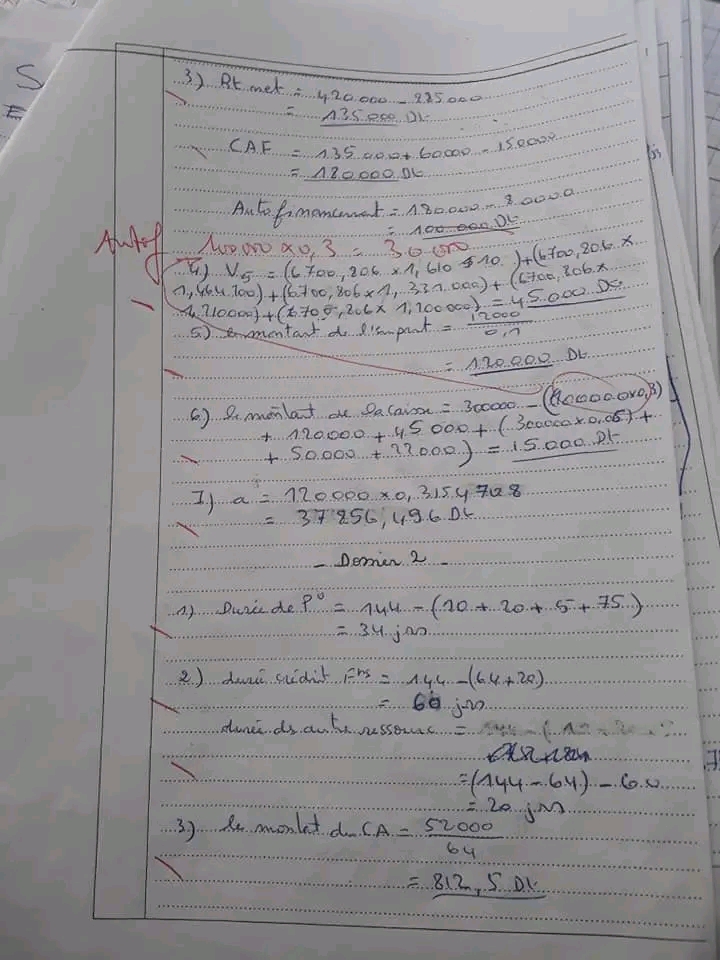 3) Rt net = 420.000 - 285.000
= 135000 Dt
CAF = 135.000 + 60000 - 15000
= 180.000 Dt
Autofinancement = 180.000 - 80000
= 100 000 Dt
Autof 100 000 x 0,3 = 30 000
4) V5 = (6700,806 x 1,610 510) + (6700,806 x
1,464.100) + (6700,806 x 1,331.000) + (6700,806 x
1,210000) + (6700,806 x 1,100000) = 45.000 Dt
5) le montant de l'emprunt = 12000
0,1
= 120.000 Dt
6) le montant de la caisse = 300000 - (100000 x 0,3)
+ 120.000 + 45.000 + (300000 x 0,05) +
+ 50.000 + 22000) = 15.000 Dt
7) a = 120000 x 0,3154708
= 37 856,496 Dt
- Dossier 2 -
1) Durée de P° = 144 - (10 + 20 + 5 + 75)
= 34 jrs
2) durée crédit Frs = 144 - (64 + 20)
= 60 jrs
durée ds autre ressource =
= (144 - 64) - 60
= 20 jrs
3) le montat du CA = 52000
64
= 812,5 Dt